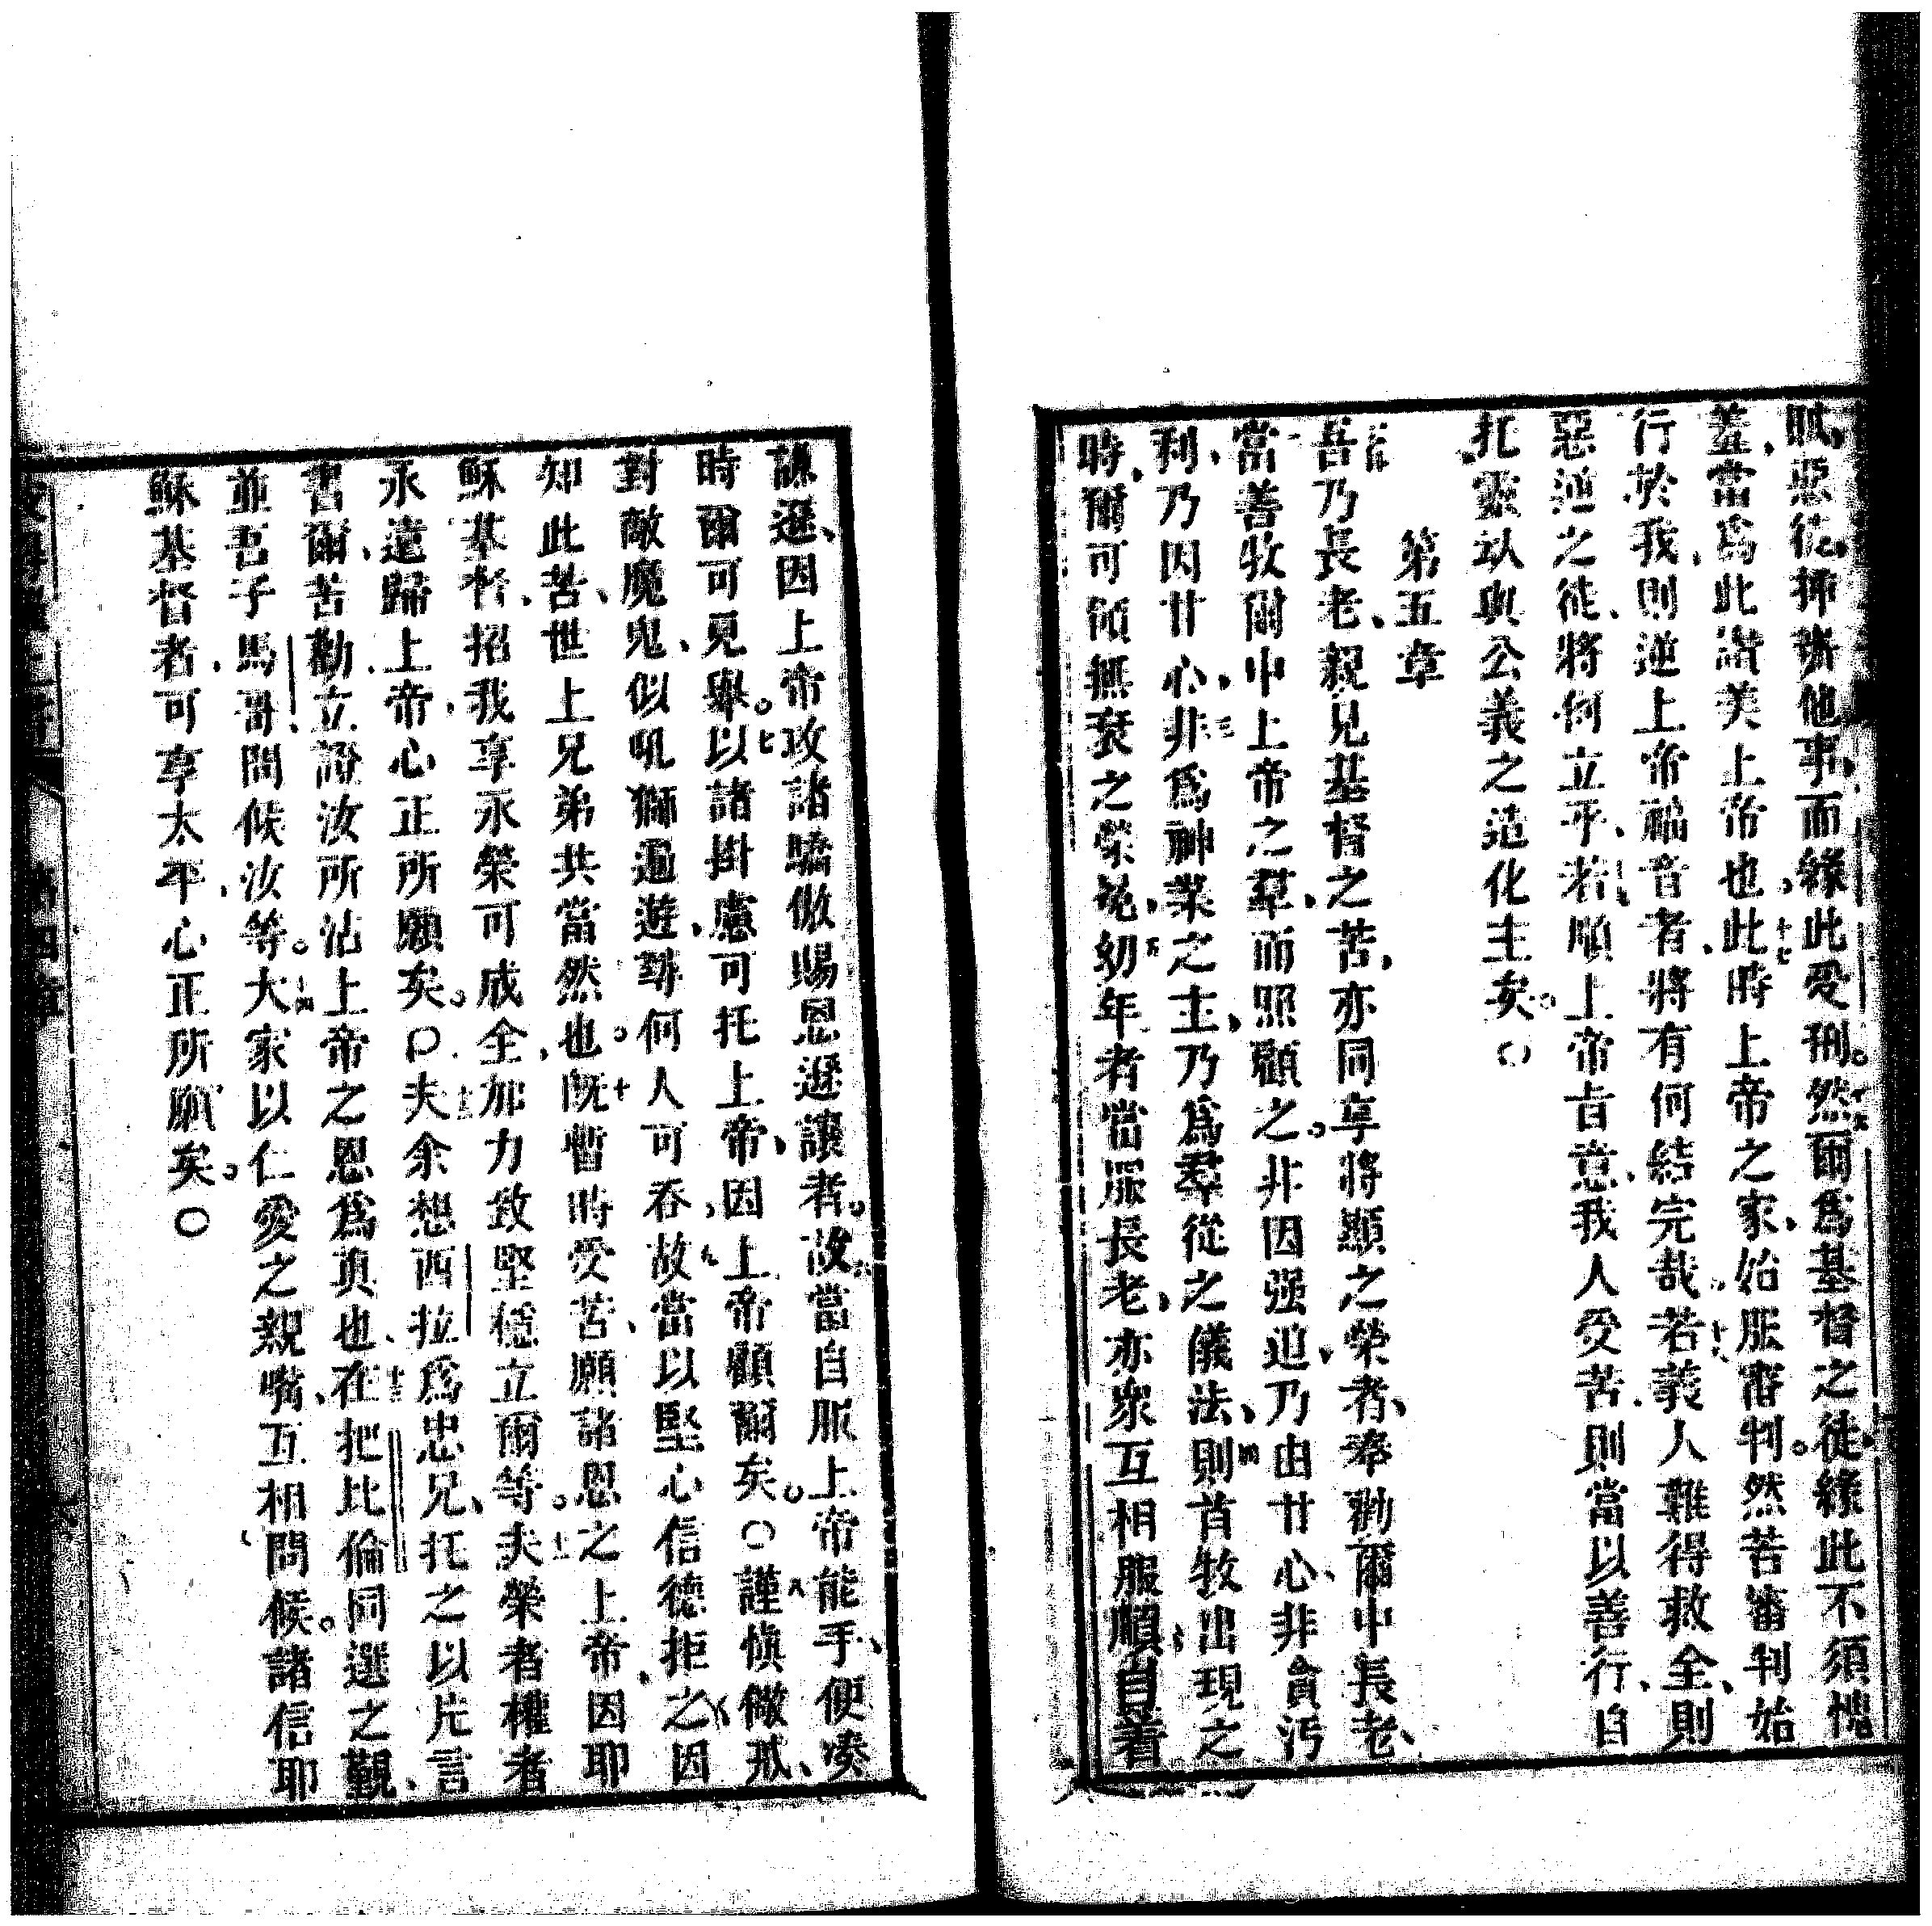 賊、惡徒、挿擠他事、而緣此受刑。然爾爲基督之徒、緣此不須愧
羞、當爲此讚美上帝也、此時上帝之家、始服審判。然苦審判始
行於我、則逆上帝福音者、將有何結完哉。若義人難得救全、則
惡逆之徒、將何立乎、若順上帝旨意、我人受苦、則當以善行、自
托靈以與公義之造化主矣。〇
第五章
吾乃長老、親見基督之苦、亦同享將顯之榮者、奉勸爾中長老、
當善牧爾中上帝之羣、而照顧之。非因强迫、乃由甘心、非貪汚
利、乃因甘心、非爲神業之主、乃爲羣從之儀法、則首牧出現之
時、爾可領無衰之榮冕、幼年者當服長老、亦衆互相服順、自着
謙遜、因上帝攻諸驕傲、賜恩遜讓者。故當自服上帝能手、便凑
時爾可見舉。以諸掛慮可托上帝、因上帝顧爾矣。〇謹愼儆戒、
對敵魔鬼、似吼獅遍遊、尋何人可吞、故當以堅心信德拒之、因
知此苦、世上兄弟共當然也。旣暫時受苦、願諸恩之上帝、因耶
穌基督、招我享永榮、可成全、加力致堅穩立爾等。夫榮者權者
永遠歸上帝、心正所願矣。〇夫余想西拉爲忠兄、托之以片言
書爾、苦勸、立證汝所沾上帝之恩爲眞也、在把比倫同選之觀、
並吾子馬哥問候汝等。大家以仁愛之親嘴、互相問候。諸信耶
穌基督者、可享太平、心正所願矣。〇